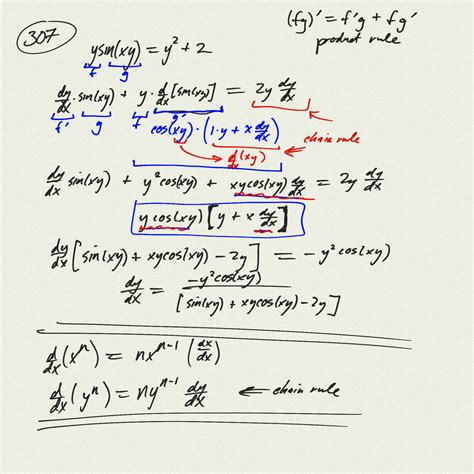 307
(fg)' = f'g + fg'
product rule
y sin(xy) = y² + 2
f g
dy/dx · sin(xy) + y · d/dx [sin(xy)] = 2y dy/dx
f' g f g'
cos(xy) · (1·y + x dy/dx) ← chain rule
d/dx (xy)
dy/dx sin(xy) + y² cos(xy) + xy cos(xy) dy/dx = 2y dy/dx
y cos(xy) [y + x dy/dx]
dy/dx [sin(xy) + xy cos(xy) - 2y] = -y² cos(xy)
dy/dx = -y² cos(xy) / [sin(xy) + xy cos(xy) - 2y]
d/dx (xⁿ) = nxⁿ⁻¹ (dx/dx)
d/dx (yⁿ) = nyⁿ⁻¹ dy/dx ← chain rule